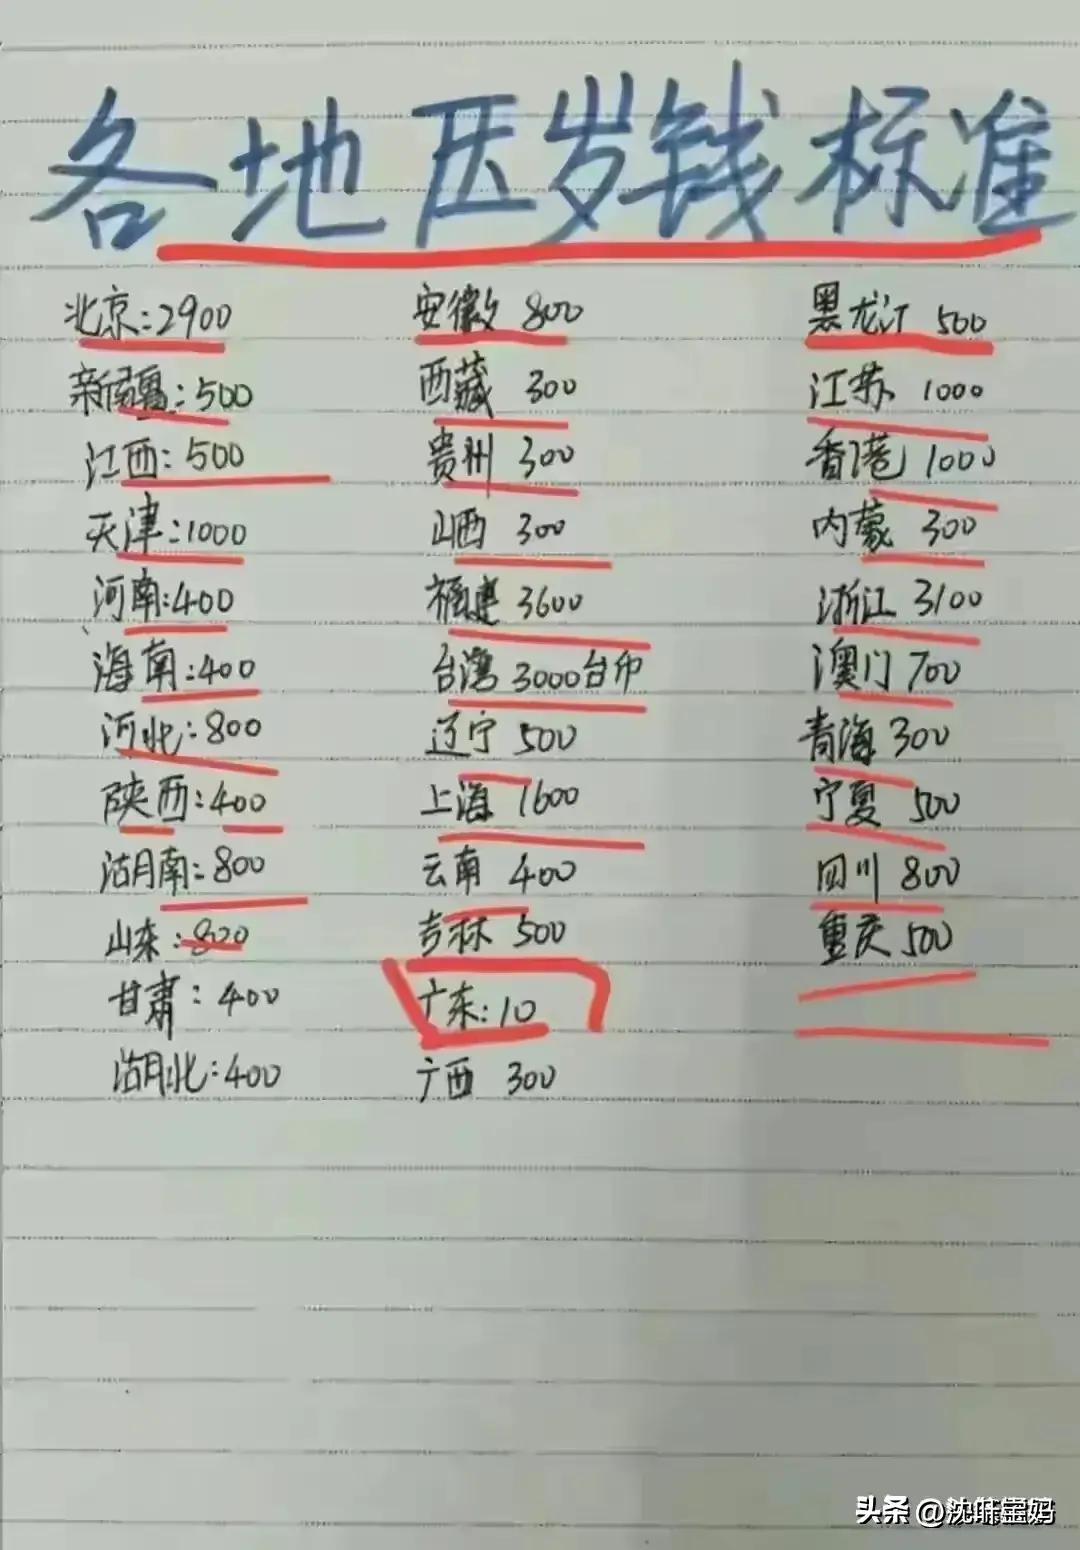 各地压岁钱标准
北京:2900 安徽 800 黑龙江 500
新疆:500 西藏 300 江苏 1000
江西:500 贵州 300 香港 1000
天津:1000 山西 300 内蒙 300
河南:400 福建 3600 浙江 3100
海南:400 台湾 3000台币 澳门 700
河北:800 辽宁 500 青海 300
陕西:400 上海 1600 宁夏 500
湖南:800 云南 400 四川 800
山东:800 吉林 500 重庆 500
甘肃:400 广东:10
湖北:400 广西 300
头条 @沈